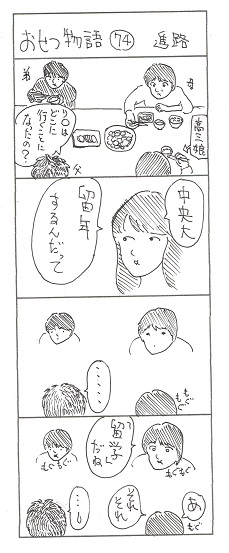 おせつ物語 74 進路
弟
母
高三娘
父
りのは
どこに
行くことに
なったの？
中央大
留年
するんだって
・・・・・
もぐもぐ
留学て
だね
もぐもぐ
あ
それ
それ
・・・・